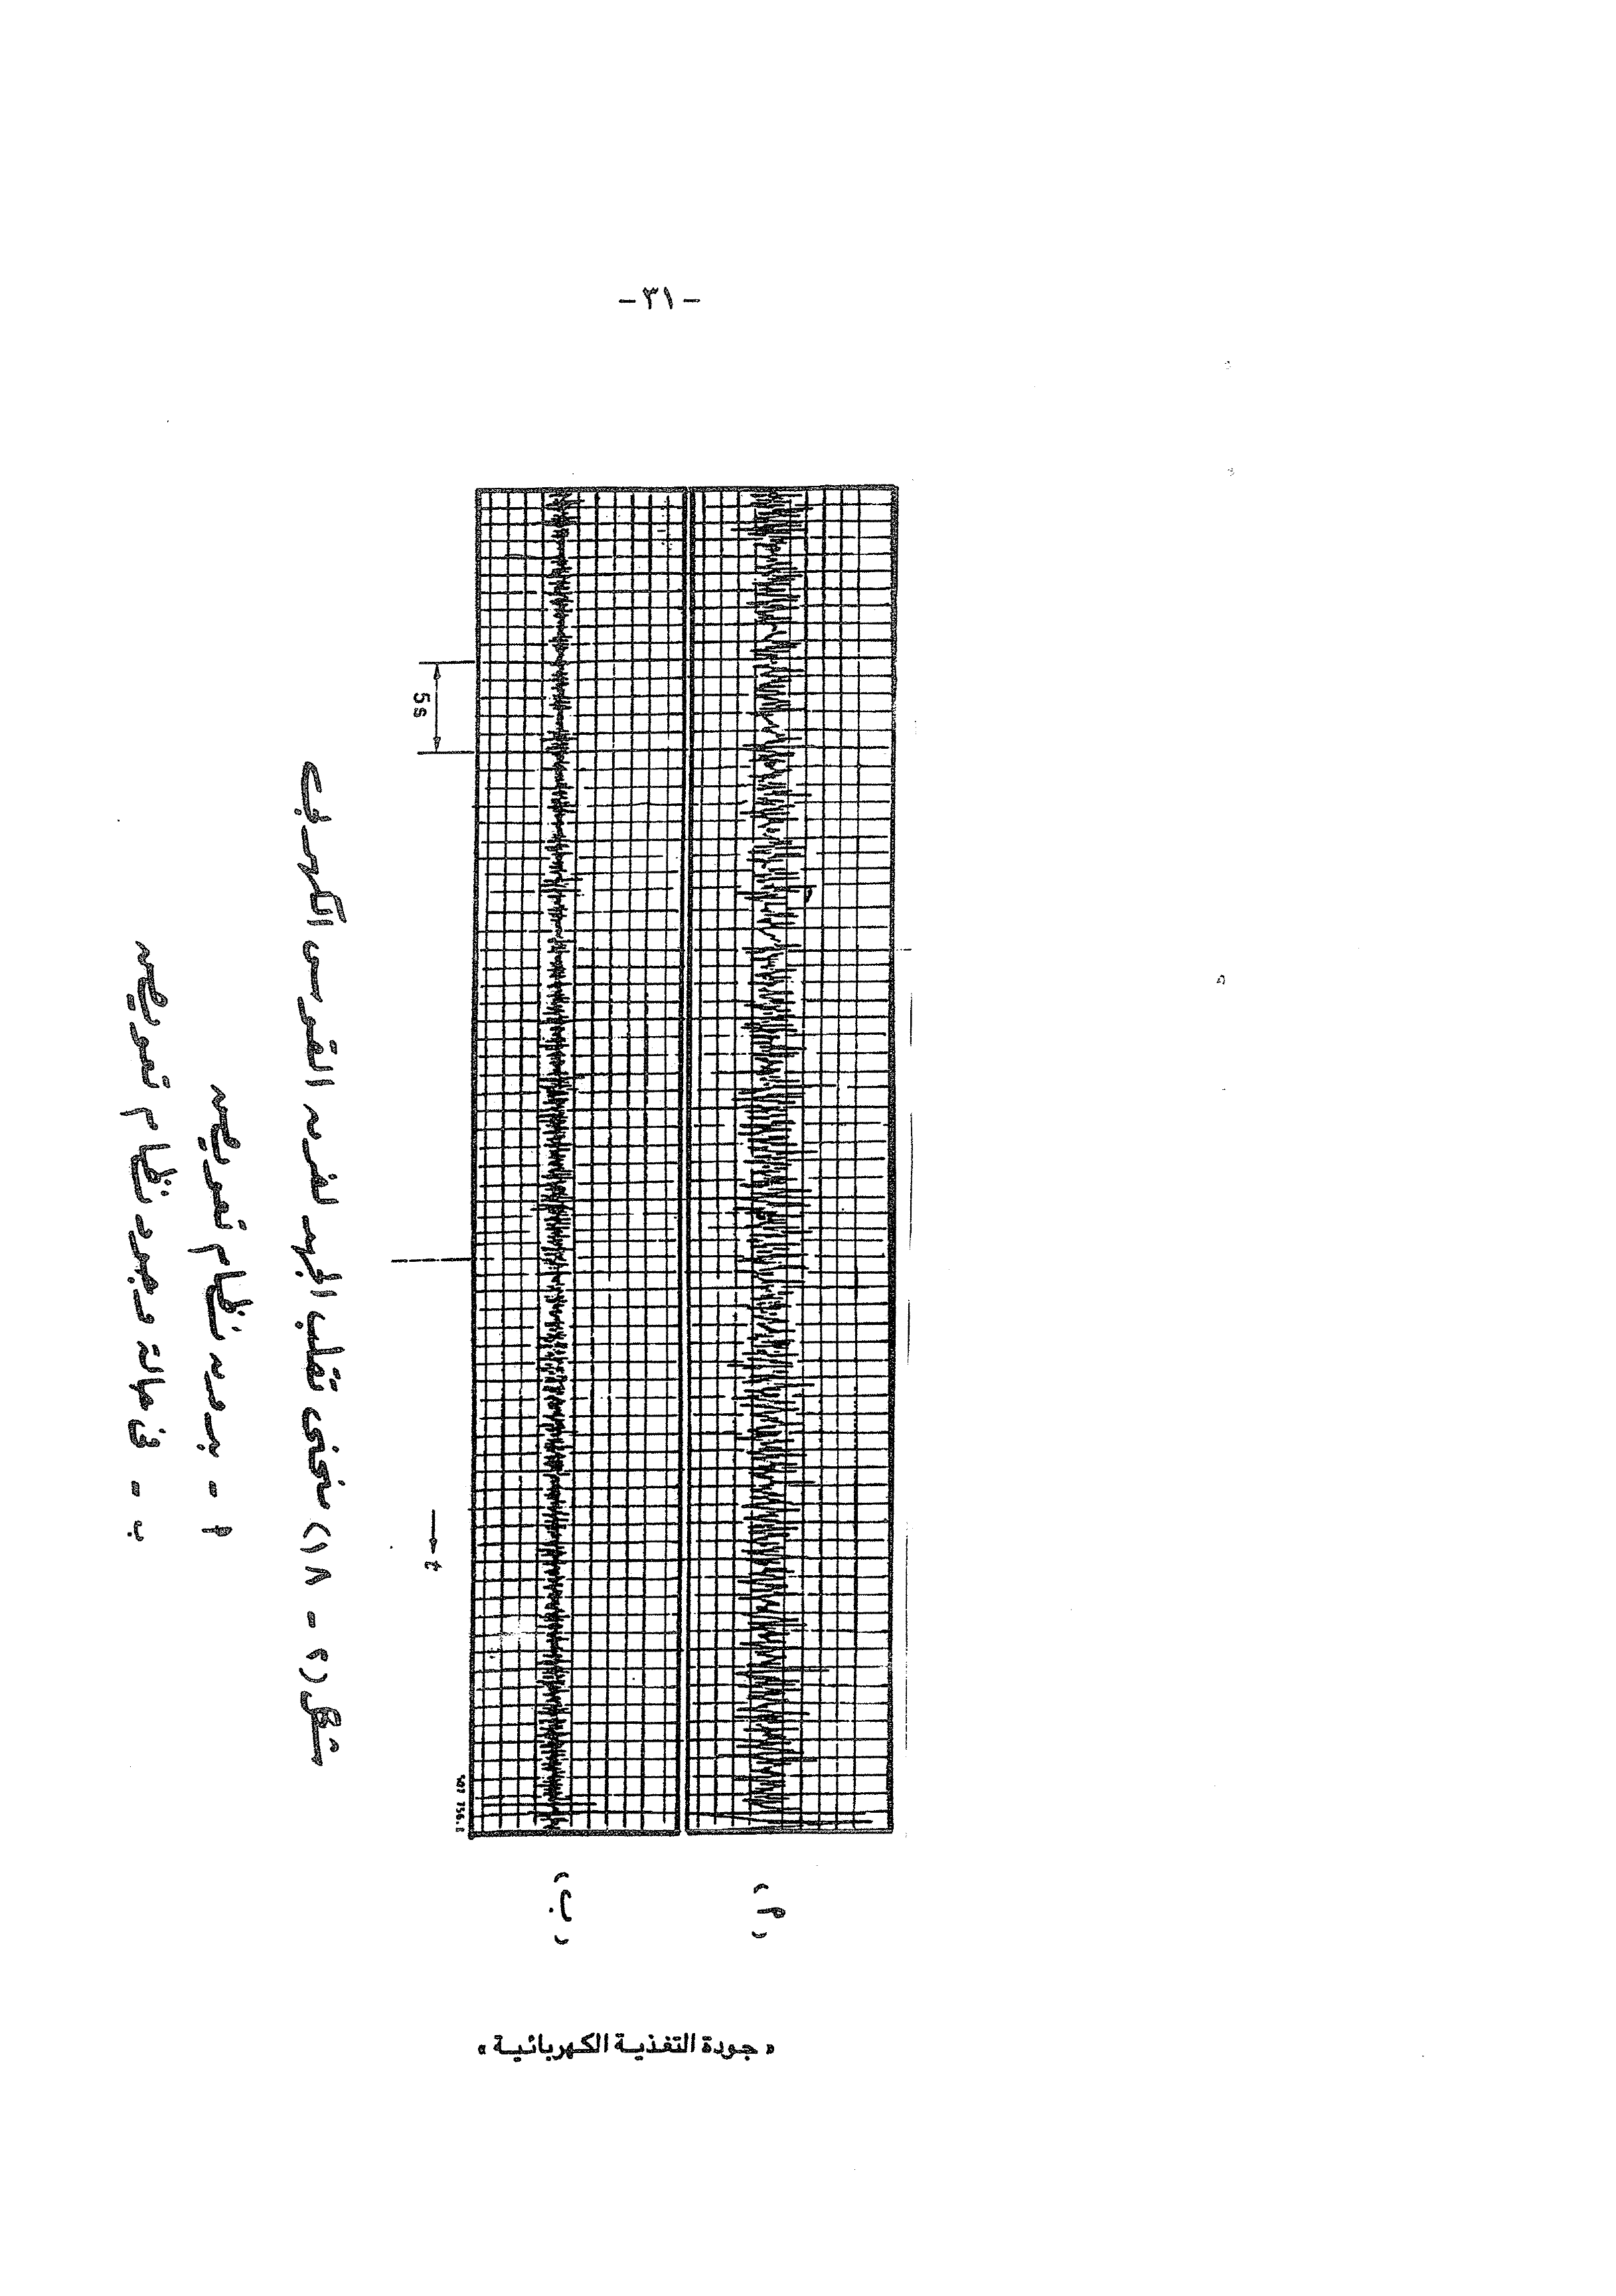 - ٣١ -
( أ )
( ب )
5s
t
شكل (٢ - ١٨) منحنى تقلب الجهد لفرن القوس الكهربى
أ - بدون نظام تعويض
ب - فى حالة وجود نظام تعويض
« جودة التغذية الكهربائية »